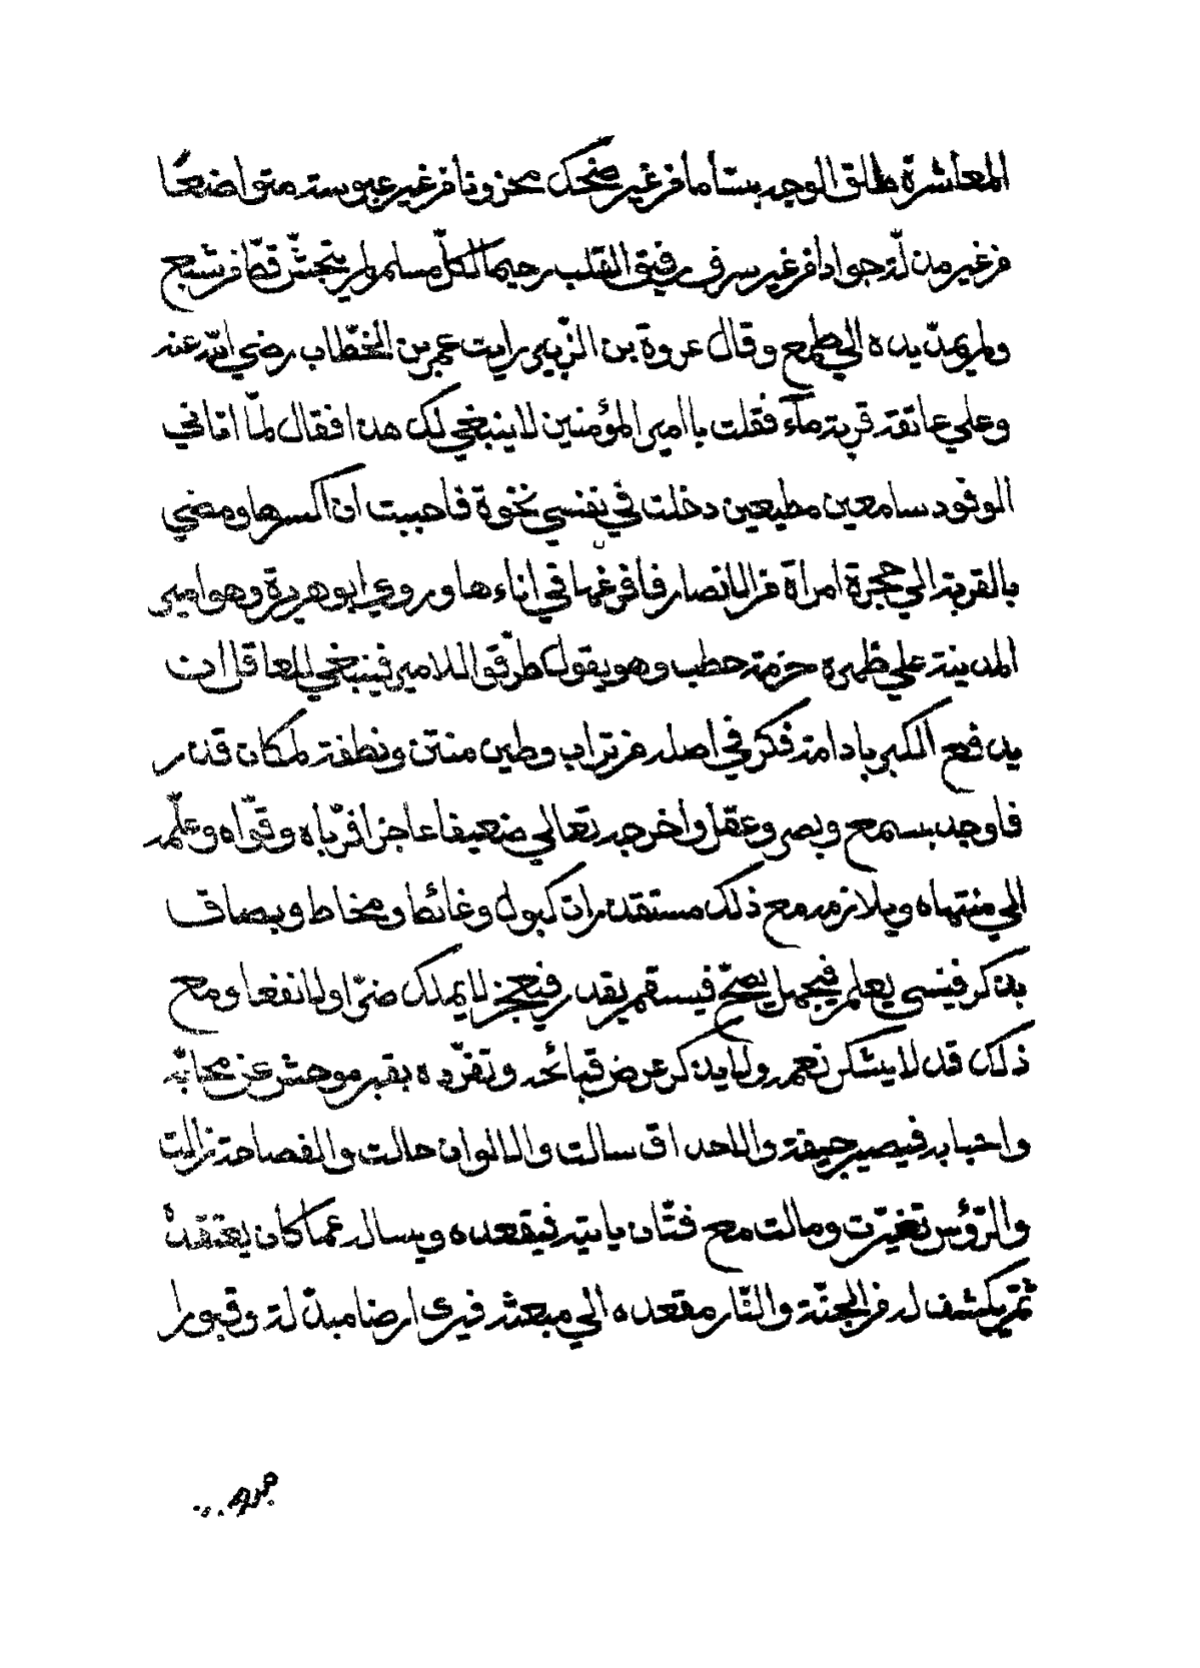 المعاشرة طلق الوجه بسّاما من غير ضحك محزونا من غير عبوسة متواضعا
من غير مذلّة جوادا من غير سرف رفيق القلب رحيما لكلّ مسلم ولم يتجشّ قطّ من شبع
ولم يمدّ يده الي طمع وقال عروة بن الزّبير رايت عمر بن الخطّاب رضي الله عنه
وعلي عاتقة قربة مآء فقلت يا امير المؤمنين لا ينبغي لك هذا فقال لمّا اتاني
الوفود سامعين مطيعين دخلت في نفسي نخوة فاحببت ان اكسرها ومضي
بالقربة الي حجرة امراة من الانصار فافرغها في اناءها وروي ابو هريرة وهو امير
المدينة علي ظهره حزمة حطب وهو يقول طرّقوا للامير فينبغي للعاقل ان
يدفع الكبر بادامة فكر في اصله من تراب وطين منتن ونطفة لمكان قذر
فاوجد بسمع وبصر وعقل واخرجه تعالي ضعيفا عاجزا فربّاه وقوّاه وعلّمه
الي منتهاه ويلازمه مع ذلك مستقذرات كبول وغائط ومخاط وبصاق
يذكر فينسي يعلم فيجهل يصحّ فيسقم يقدر فيعجز لا يملك ضرّا ولا نفعا ومع
ذلك قد لا يشكر نعمه ولا يذكر عرض قبائحه وتفرّده بقبر موحش عن محابّه
واحبابه فيصير جيفة والاحداق سالت والالوان حالت والفصاحة زالت
والرّؤس تغيّرت ومالت مع فتّان ياتيه فيقعده ويساله عما كان يعتقده
ثمّ يكشف له من الجنّة والنّار مقعده الي مبعثه فيرى ارضا مبدّلة وقبورا